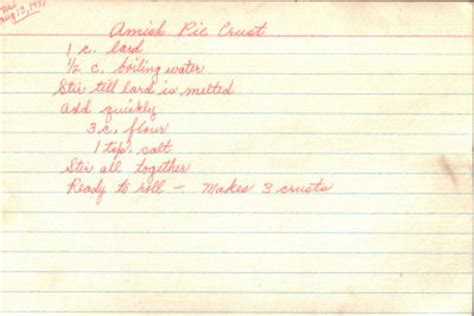 Aug 13, 19
Amish Pie Crust
1 c. lard
1/2 c. boiling water
Stir till lard is melted
Add quickly
3 c. flour
1 tsp. salt
Stir all together
Ready to roll – Makes 3 crusts